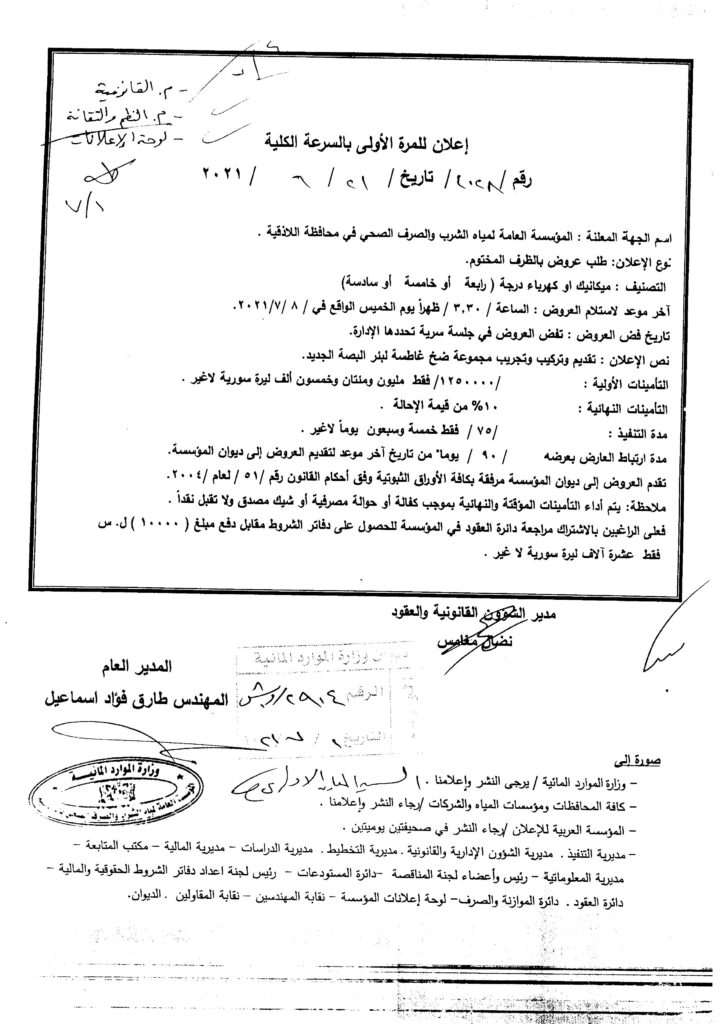 - م. القانونية
- م. النظم والتقانة
- لوحة الإعلانات
٧/١
إعلان للمرة الأولى بالسرعة الكلية
رقم / ٢٠٢٨ / تاريخ / ٢١ / ٦ / ٢٠٢١
اسم الجهة المعلنة : المؤسسة العامة لمياه الشرب والصرف الصحي في محافظة اللاذقية .
نوع الإعلان: طلب عروض بالظرف المختوم.
التصنيف : ميكانيك او كهرباء درجة ( رابعة أو خامسة أو سادسة)
آخر موعد لاستلام العروض : الساعة / ٣,٣٠ / ظهراً يوم الخميس الواقع في / ٨ /٢٠٢١/٧.
تاريخ فض العروض : تفض العروض في جلسة سرية تحددها الإدارة.
نص الإعلان : تقديم وتركيب وتجريب مجموعة ضخ غاطسة لبئر البصة الجديد.
التأمينات الأولية : /١٢٥٠٠٠٠/ فقط مليون ومئتان وخمسون ألف ليرة سورية لاغير .
التأمينات النهائية : ١٠% من قيمة الإحالة .
مدة التنفيذ : /٧٥/ فقط خمسة وسبعون يوماً لاغير .
مدة ارتباط العارض بعرضه / ٩٠ / يوما" من تاريخ آخر موعد لتقديم العروض إلى ديوان المؤسسة.
تقدم العروض إلى ديوان المؤسسة مرفقة بكافة الأوراق الثبوتية وفق أحكام القانون رقم /٥١/ لعام /٢٠٠٤.
ملاحظة: يتم أداء التأمينات المؤقتة والنهائية بموجب كفالة أو حوالة مصرفية أو شيك مصدق ولا تقبل نقداً .
فعلى الراغبين بالاشتراك مراجعة دائرة العقود في المؤسسة للحصول على دفاتر الشروط مقابل دفع مبلغ ( ١٠٠٠٠ ) ل. س
فقط عشرة آلاف ليرة سورية لا غير .
مدير الشؤون القانونية والعقود
نضال مغامس
ديوان وزارة الموارد المائية
الرقم ٢٩١٤
التاريخ
المدير العام
المهندس طارق فؤاد اسماعيل
وزارة الموارد المائية
صورة إلى
– وزارة الموارد المائية / يرجى النشر وإعلامنا .
– كافة المحافظات ومؤسسات المياه والشركات / رجاء النشر وإعلامنا .
– المؤسسة العربية للإعلان /رجاء النشر في صحيفتين يوميتين .
– مديرية التنفيذ . مديرية الشؤون الإدارية والقانونية . مديرية التخطيط . مديرية الدراسات – مديرية المالية – مكتب المتابعة –
مديرية المعلوماتية – رئيس وأعضاء لجنة المناقصة –دائرة المستودعات – رئيس لجنة اعداد دفاتر الشروط الحقوقية والمالية –
دائرة العقود . دائرة الموازنة والصرف– لوحة إعلانات المؤسسة – نقابة المهندسين – نقابة المقاولين . الديوان.